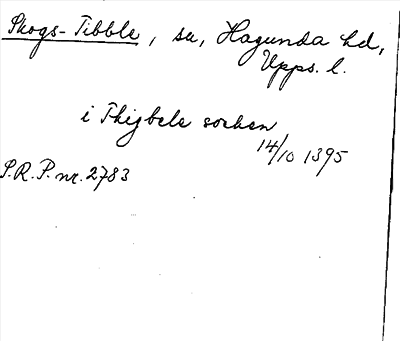 Skogs-Tibble, sn, Hagunda hd,
Upps. l.
i Thigbele socken
14/10 1395
S.R.P. nr. 2783